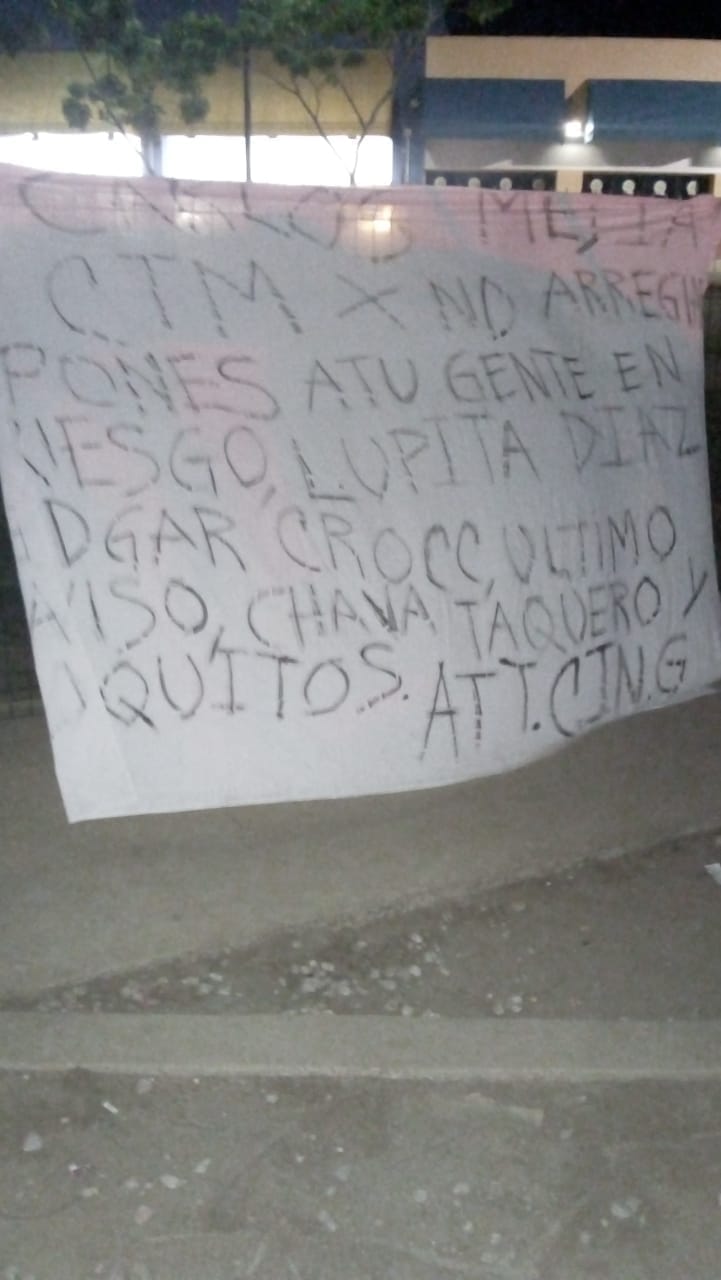 CARLOS MEJIA
CTM X NO ARREGL
PONES ATU GENTE EN
RIESGO, LUPITA DIAZ
EDGAR, CROCC, ULTIMO
AVISO, CHAVA TAQUERO Y
QUITOS. ATT.CJN.G